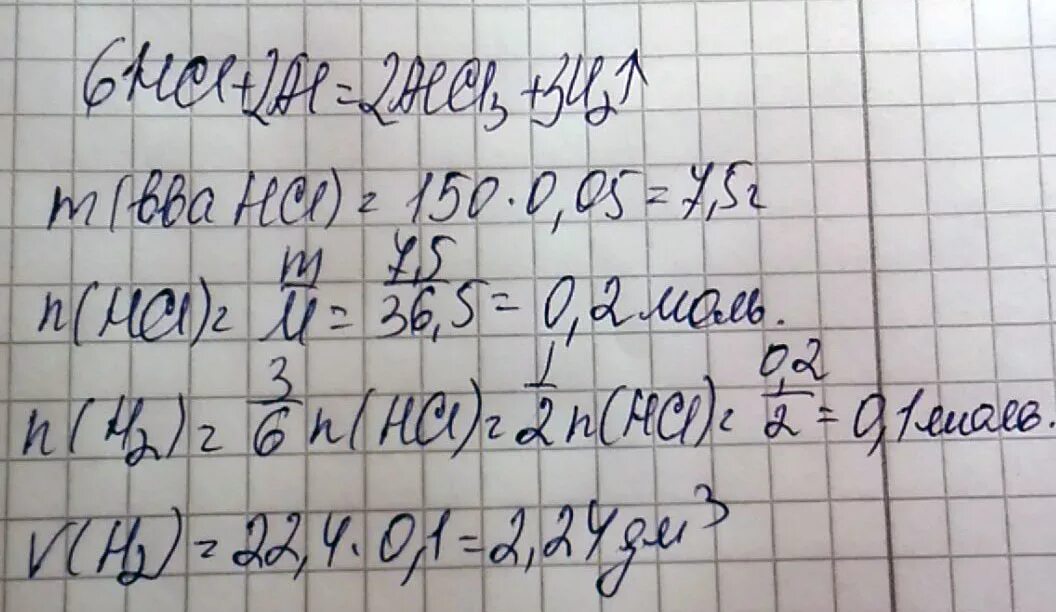 6HCl+2Al=2AlCl₃+3H₂↑
m(вва HCl)= 150·0,05=7,5г
n(HCl)= m/M = 7,5/36,5 = 0,2 моль.
n(H₂)= 3/6 n(HCl)= 1/2 n(HCl)= 0,2/2 = 0,1 моль.
V(H₂)=22,4·0,1=2,24 дм³